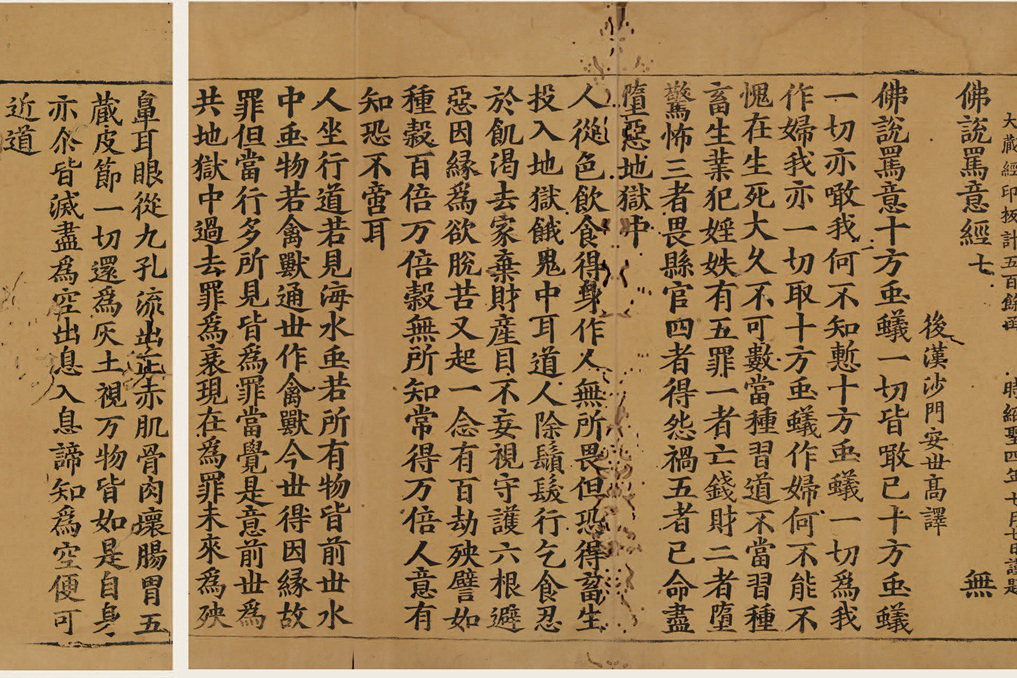 大藏經印板計五百餘凾 時紹聖四年七月七日謹題
佛說罵意經 七 無
後漢沙門安世高譯
佛說罵意十方䖝蟻一切皆噉已十方䖝蟻
一切亦噉我何不知慙十方䖝蟻一切爲我
作婦我亦一切取十方䖝蟻作婦何不能不
愧在生死大久不可數當種習道不當習種
畜生業犯婬妷有五罪一者亡錢財二者墮
驚怖三者畏縣官四者得怨禍五者已命盡
墮惡地獄中
人從色飲食得身作人無所畏但恐得畜生
投入地獄餓鬼中耳道人除鬚髮行乞食忍
於飢渴去家棄財產目不妄視守護六根避
惡因緣爲欲脫苦又起一念有百劫殃譬如
種糓百倍万倍糓無所知常得万倍人意有
知恐不啻耳
人坐行道若見海水䖝若所有物皆前世水
中䖝物若禽獸通世作禽獸今世得因緣故
罪但當行多所見皆爲罪當覺是意前世爲
共地獄中過去罪爲衰現在爲罪未來爲殃
鼻耳眼從九孔流出正赤肌骨肉壞腸胃五
藏皮節一切還爲灰土視万物皆如是自身
亦尒皆滅盡爲空出息入息諦知爲空便可
近道